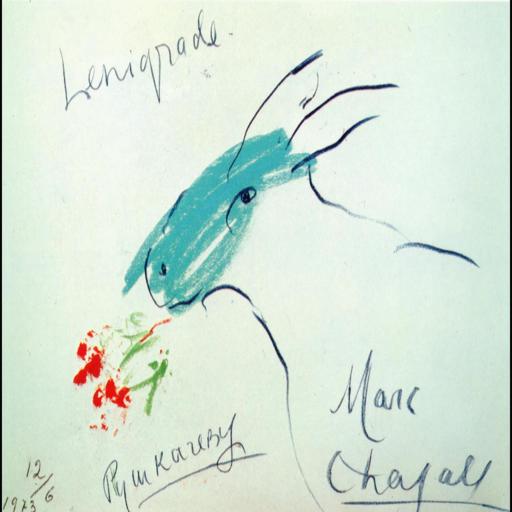 Lenigrade.
Marc
Chagall
Рушкареву
12/6
1973